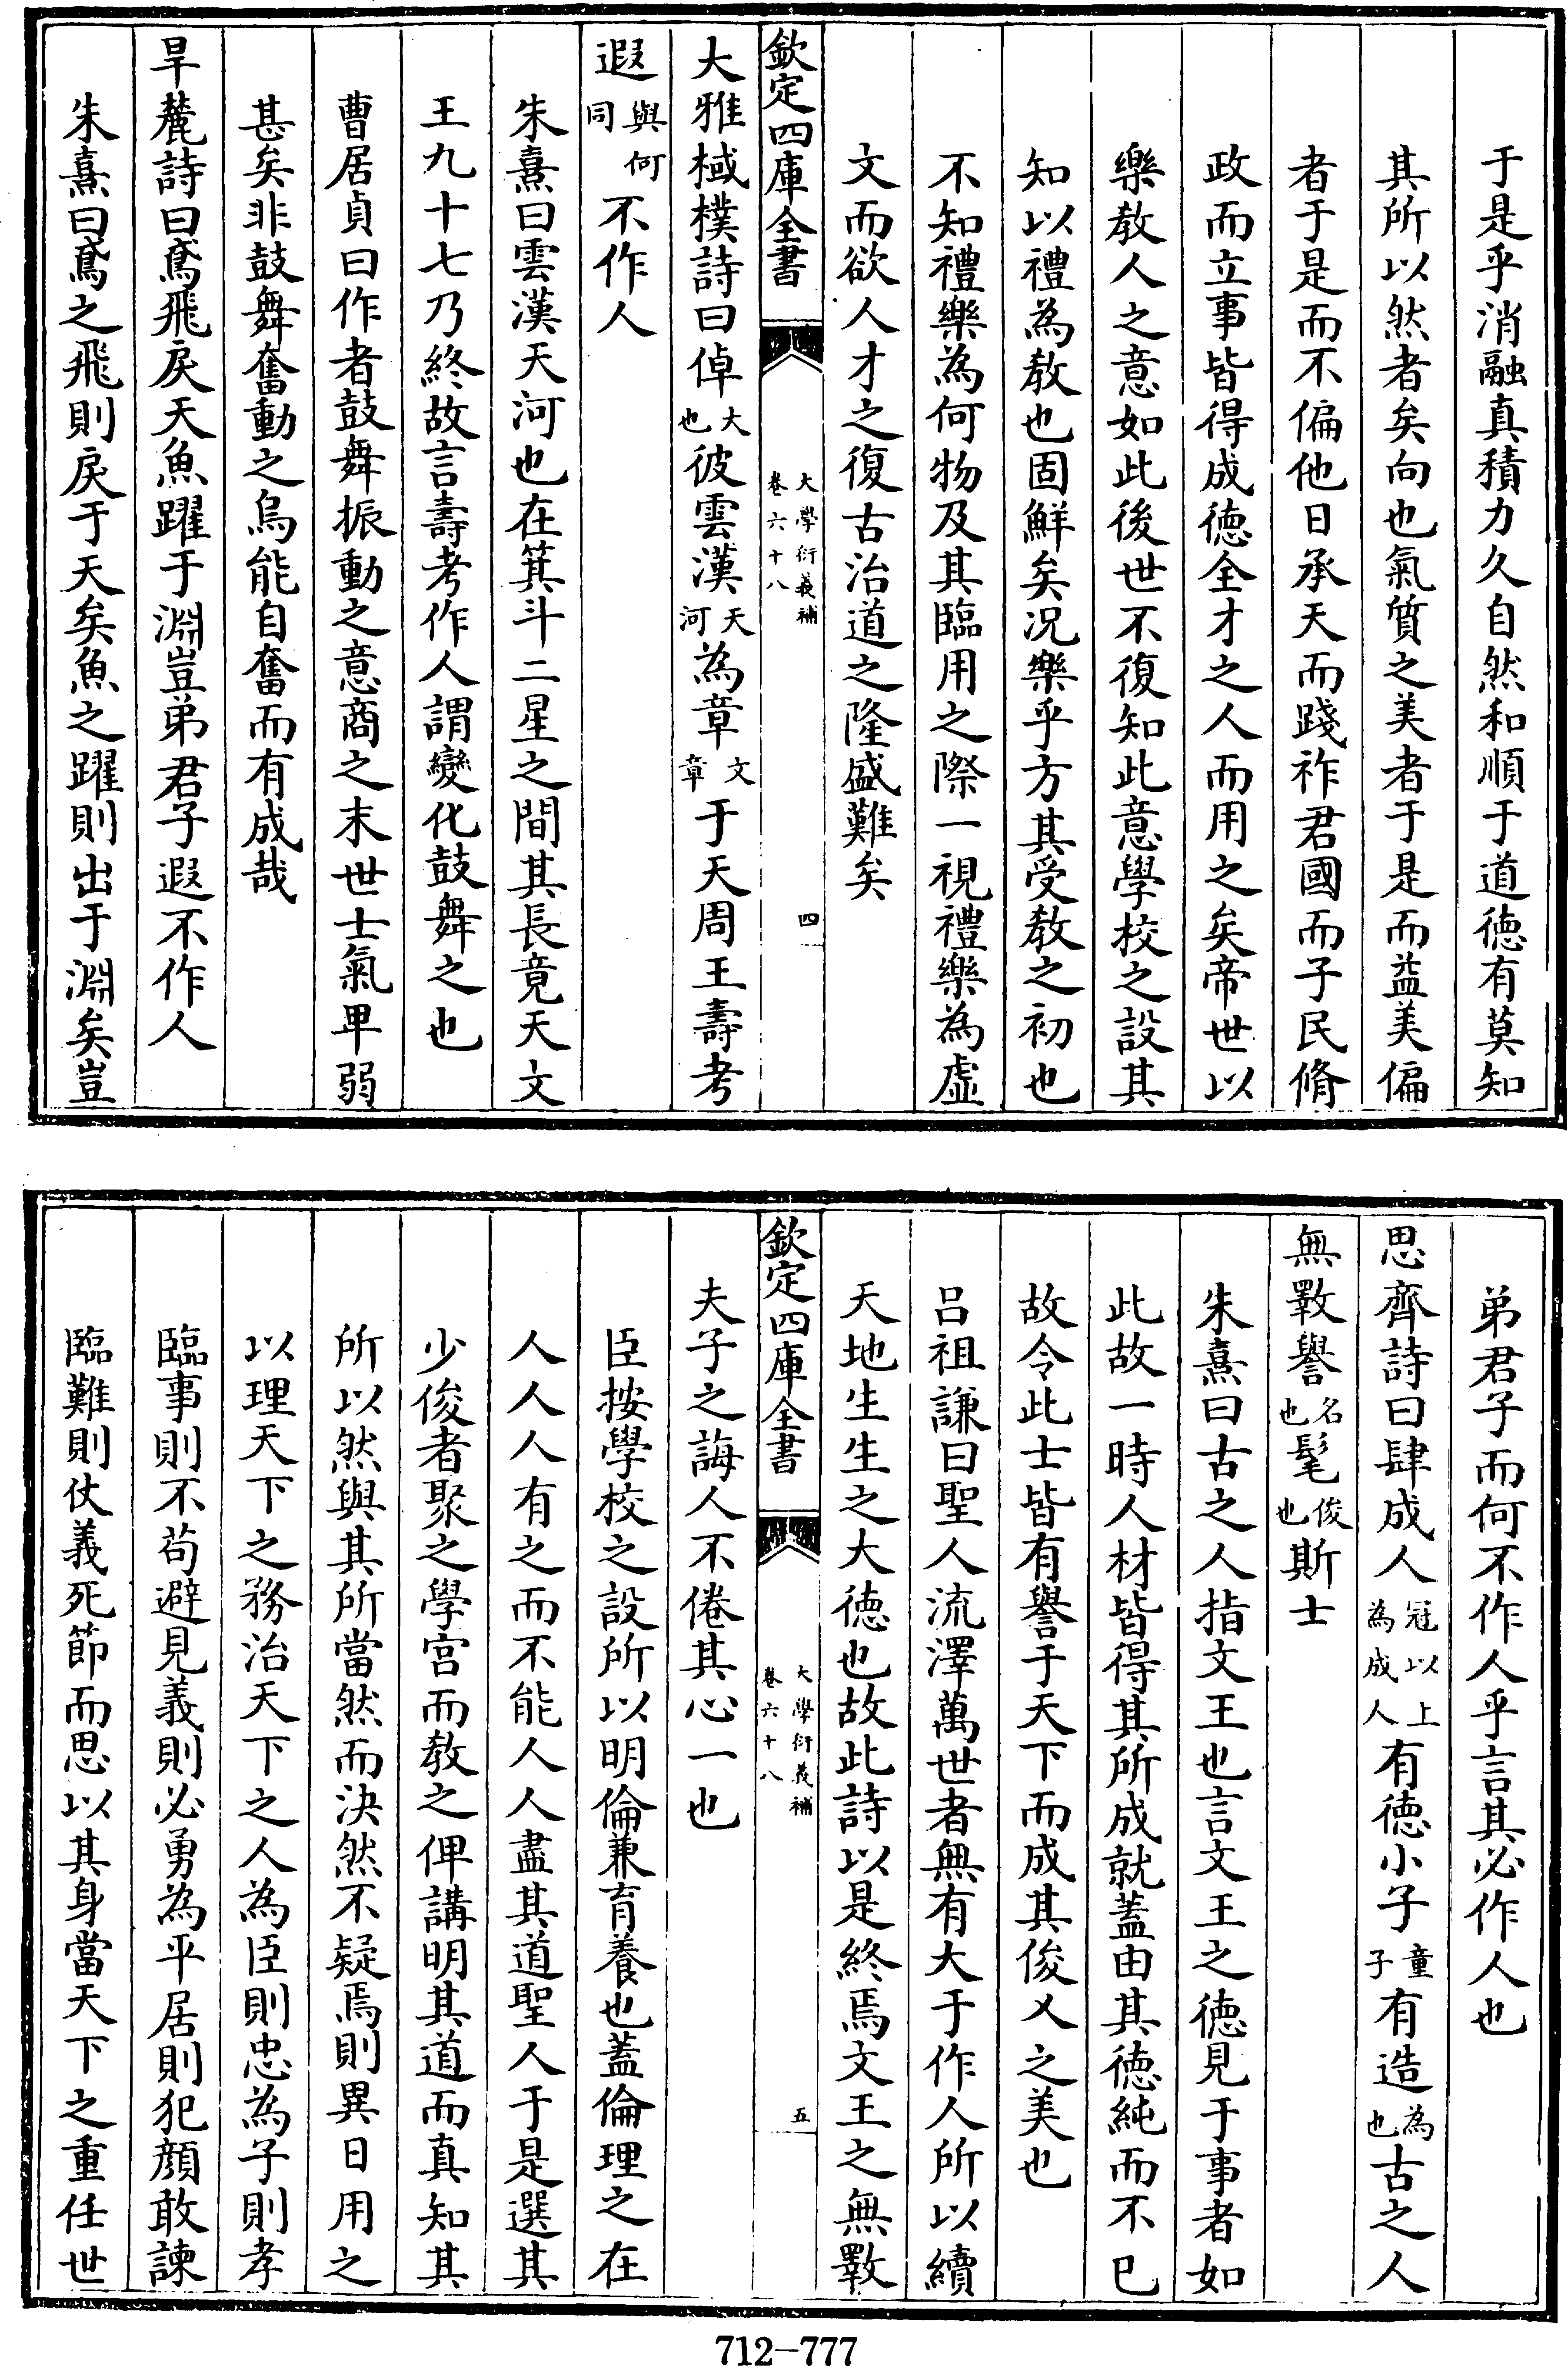 于是乎消融真積力久自然和順于道德有莫知
其所以然者矣向也氣質之美者于是而益美偏
者于是而不偏他日承天而踐祚君國而子民脩
政而立事皆得成德全才之人而用之矣帝世以
樂教人之意如此後世不復知此意學校之設其
知以禮為教也固鮮矣况樂乎方其受教之初也
不知禮樂為何物及其臨用之際一視禮樂為虛
文而欲人才之復古治道之隆盛難矣
欽定四庫全書 大學衍義補 卷六十八 四
大雅棫樸詩曰倬大也彼雲漢天河為章文章于天周王壽考
遐與何同不作人
朱熹曰雲漢天河也在箕斗二星之間其長竟天文
王九十七乃終故言壽考作人謂變化鼓舞之也
曹居貞曰作者鼓舞振動之意商之末世士氣卑弱
甚矣非鼓舞奮動之烏能自奮而有成哉
旱麓詩曰鳶飛戾天魚躍于淵豈弟君子遐不作人
朱熹曰鳶之飛則戾于天矣魚之躍則出于淵矣豈
弟君子而何不作人乎言其必作人也
思齊詩曰肆成人冠以上為成人有德小子童子有造為也古之人
無斁譽名也髦俊也斯士
朱熹曰古之人指文王也言文王之德見于事者如
此故一時人材皆得其所成就蓋由其德純而不已
故令此士皆有譽于天下而成其俊乂之美也
呂祖謙曰聖人流澤萬世者無有大于作人所以續
天地生生之大德也故此詩以是終焉文王之無斁
欽定四庫全書 大學衍義補 卷六十八 五
夫子之誨人不倦其心一也
臣按學校之設所以明倫兼育養也蓋倫理之在
人人人有之而不能人人盡其道聖人于是選其
少俊者聚之學宫而教之俾講明其道而真知其
所以然與其所當然而決然不疑焉則異日用之
以理天下之務治天下之人為臣則忠為子則孝
臨事則不苟避見義則必勇為平居則犯顔敢諫
臨難則仗義死節而思以其身當天下之重任世
712-777